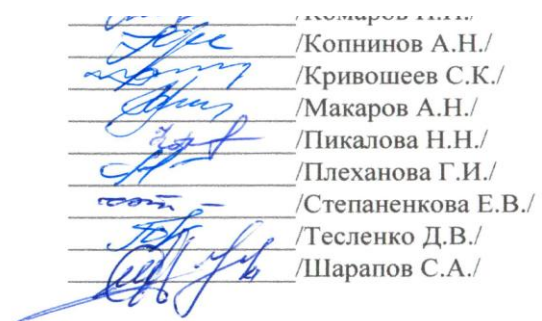 /Копнинов А.Н./
/Кривошеев С.К./
/Макаров А.Н./
/Пикалова Н.Н./
/Плеханова Г.И./
/Степаненкова Е.В./
/Тесленко Д.В./
/Шарапов С.А./